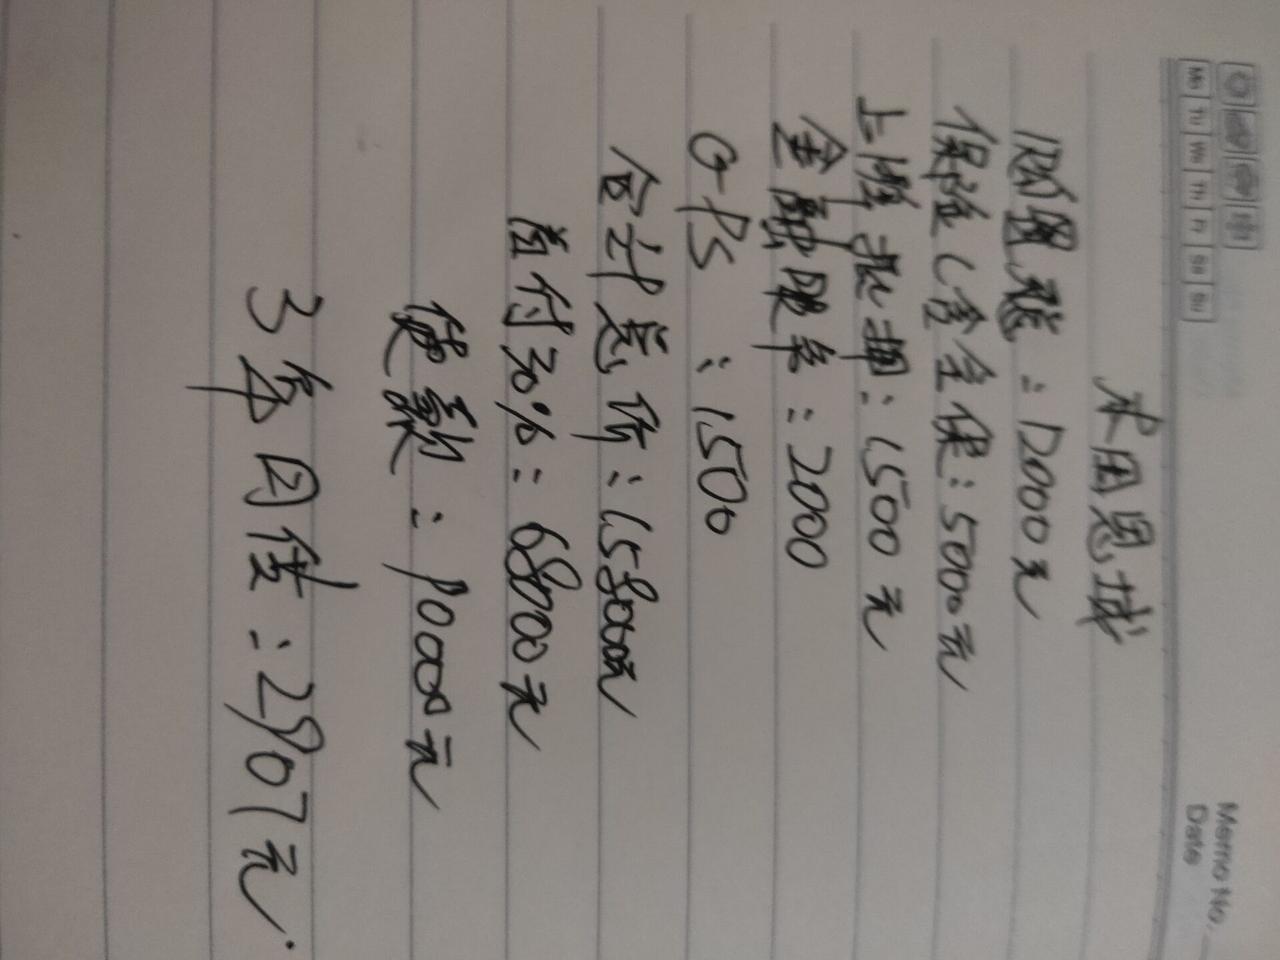 Memo No.
Date
Mo Tu We Th Fr Sa Su
本田思域
购置税：12000元
保险（含全保：5000元
上牌抵押：1500元
金融服务：2000
GPS：1500
合计总价：158000元
首付30%：68000元
贷款：90000元
3年月供：2907元.